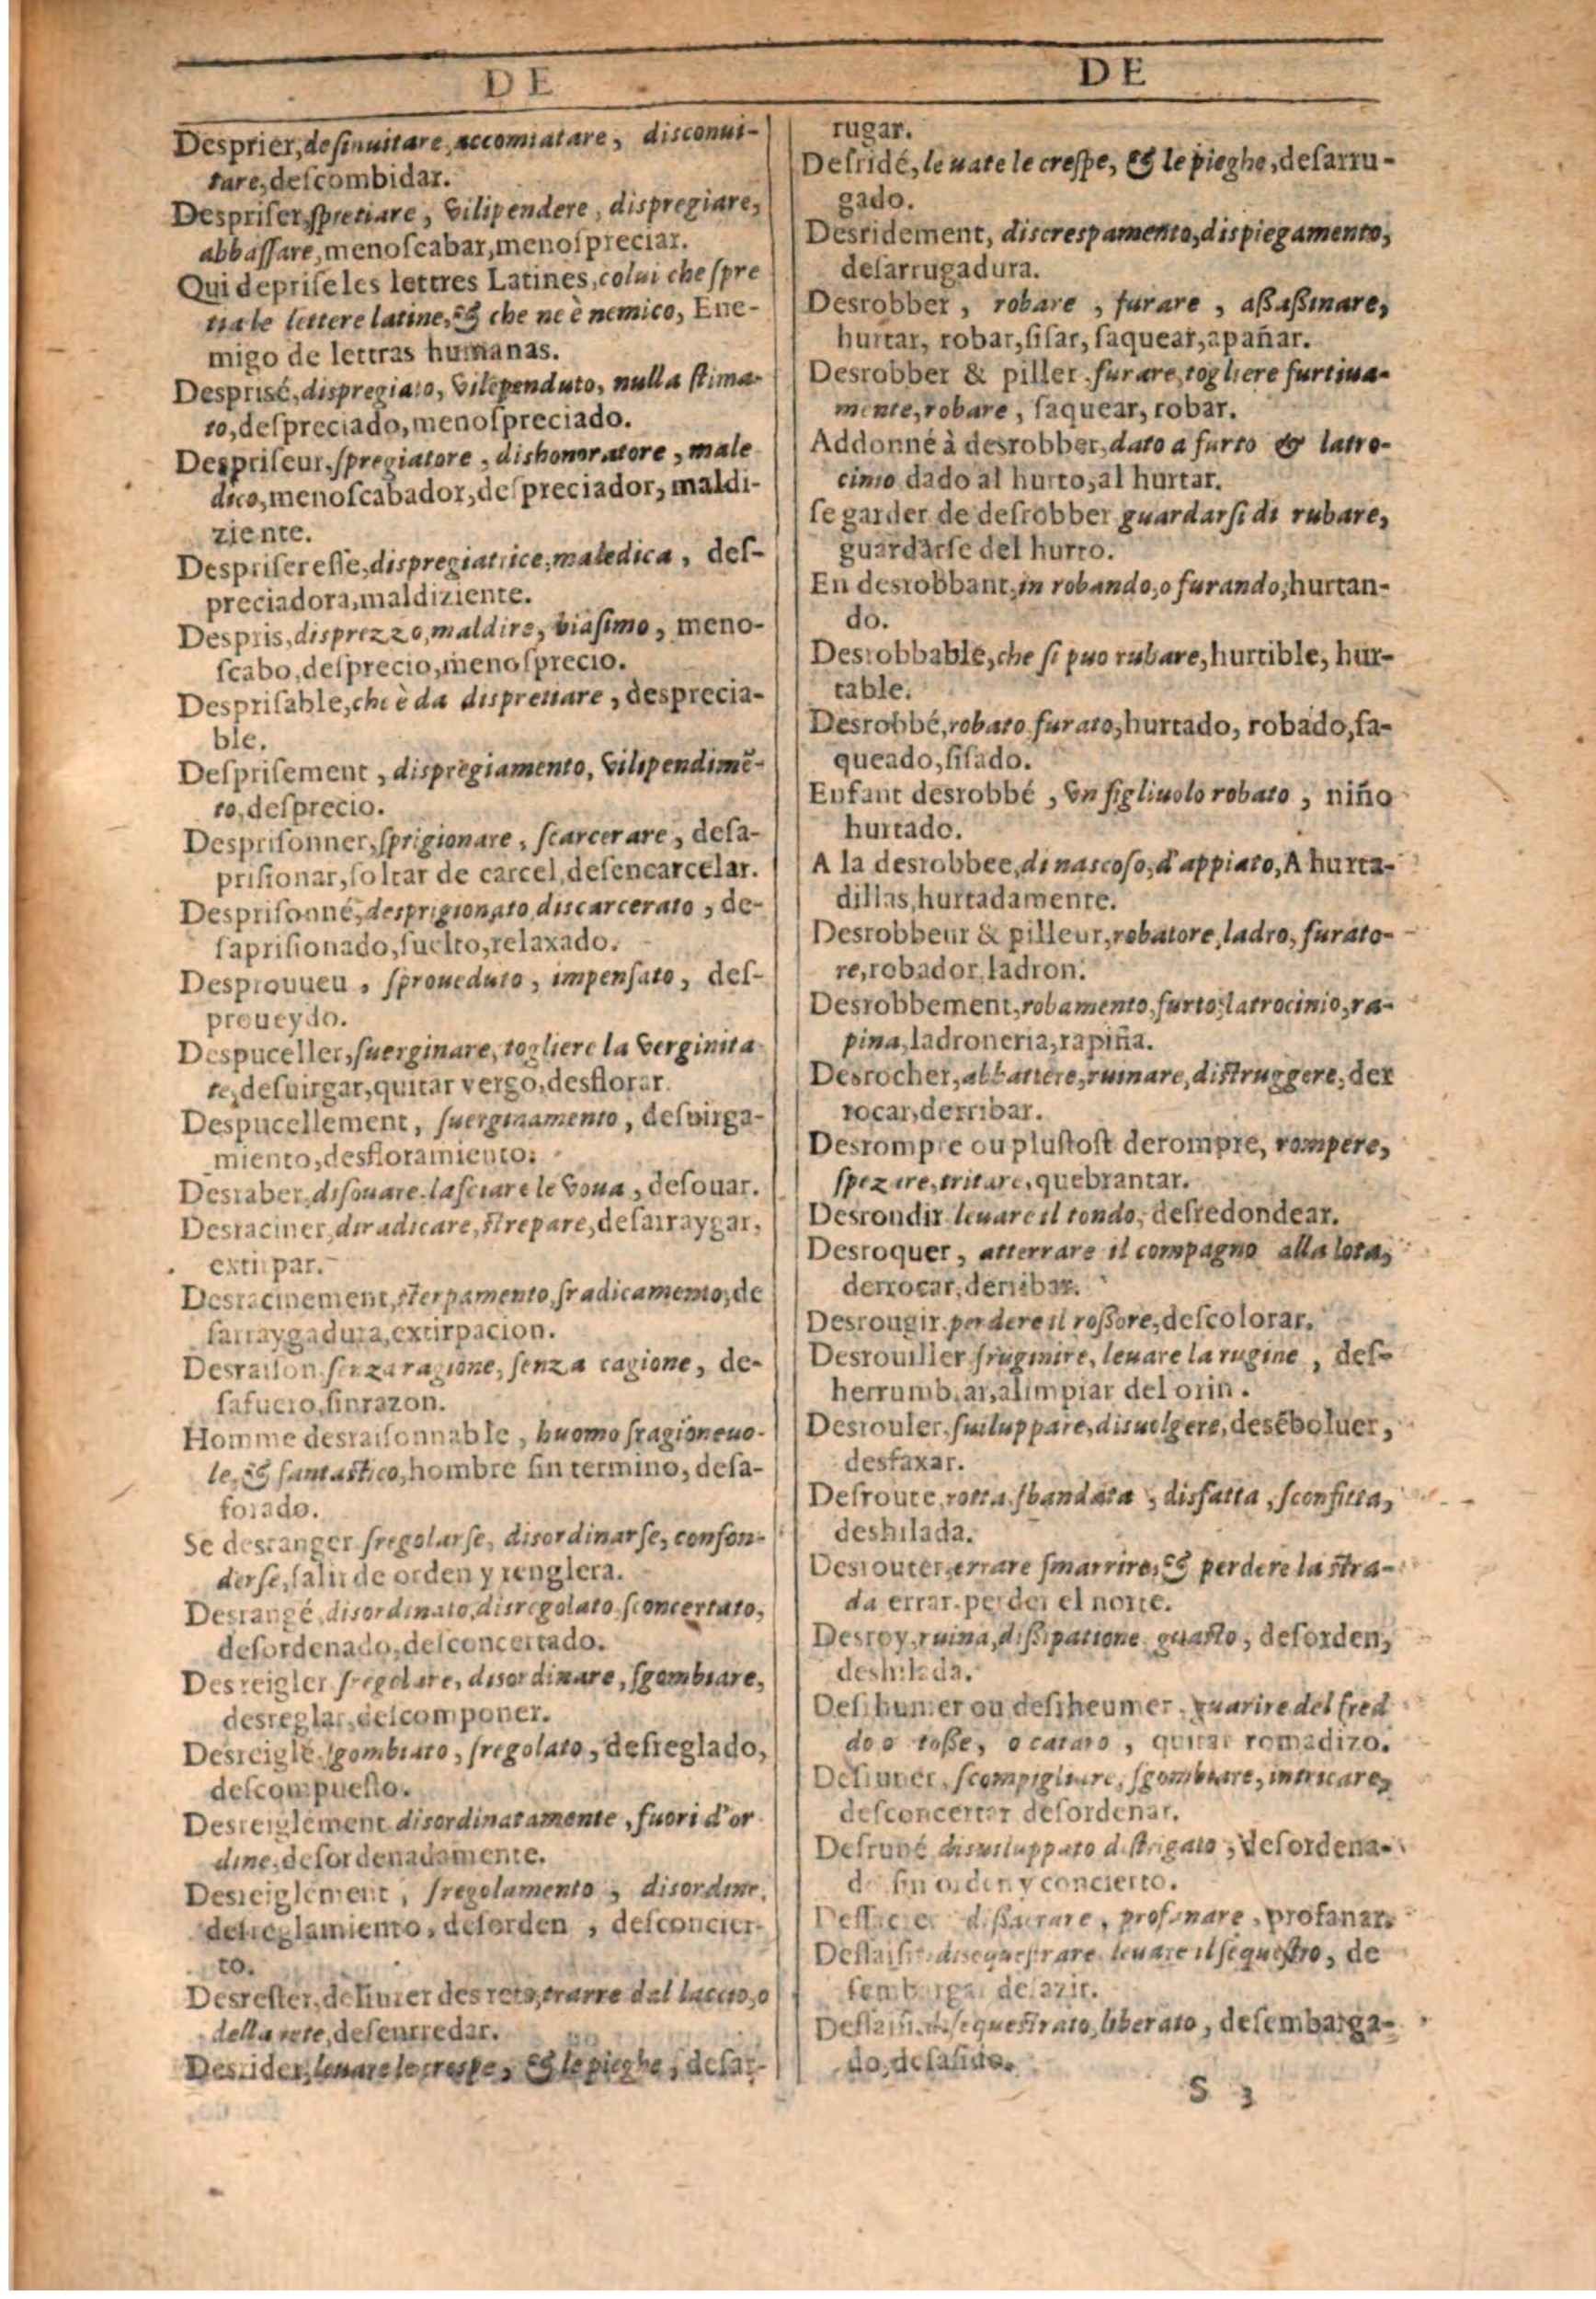 DE
Desprier, desinuitare, accomiatare, disconui-
tare, descombidar.
Despriser, spretiare, vilipendere, dispregiare,
abbassare, menoscabar, menospreciar.
Qui deprise les lettres Latines, colui che spre
tia le lettere latine, & che ne è nemico, Ene-
migo de lettras humanas.
Desprisé, dispregiato, vilependuto, nulla stima-
to, despreciado, menospreciado.
Despriseur, spregiatore, dishonoratore, male
dico, menoscabador, despreciador, maldi-
ziente.
Despriseresse, dispregiatrice, maledica, des-
preciadora, maldiziente.
Despris, disprezzo, maldire, biasimo, meno-
scabo, desprecio, menosprecio.
Desprisable, che è da dispretiare, desprecia-
ble.
Desprisement, dispregiamento, vilipendimẽ-
to, desprecio.
Desprisonner, sprigionare, scarcerare, desa-
prisionar, soltar de carcel, desencarcelar.
Desprisonné, desprigionato, discarcerato, de-
saprisionado, suelto, relaxado.
Desprouueu, sproueduto, impensato, des-
proueydo.
Despuceller, suerginare, togliere la verginita
te, desuirgar, quitar vergo, desflorar.
Despucellement, suerginamento, desvirga-
miento, desfloramiento.
Desraber, disouare, lasciare le voua, desouar.
Desraciner, diradicare, strepare, desarraygar,
extirpar.
Desracinement, sterpamento, sradicamento, de
sarraygadura, extirpacion.
Desraison, senza ragione, senza cagione, de-
safuero, sinrazon.
Homme desraisonnable, huomo sragioneuo-
le, & fantastico, hombre sin termino, desa-
forado.
Se desranger, sregolarse, disordinarse, confon-
derse, salir de orden y renglera.
Desrangé, disordinato, disregolato, sconcertato,
desordenado, desconcertado.
Desreigler, sregolare, disordinare, sgombiare,
desreglar, descomponer.
Desreiglé, sgombiato, sregolato, desreglado,
descompuesto.
Desreiglément, disordinatamente, fuori d'or
dine, desordenadamente.
Desreiglement, sregolamento, disordine,
desreglamiento, desorden, desconcier-
to.
Desrester, deliurer des rets, trarre dal laccio, o
della rete, desenrredar.
Desrider, leuare le crespe, & le pieghe, desar-
DE
rugar.
Desridé, leuate le crespe, & le pieghe, desarru-
gado.
Desridement, discrespamento, dispiegamento,
desarrugadura.
Desrobber, robare, furare, assassinare,
hurtar, robar, sisar, saquear, apañar.
Desrobber & piller, furare, togliere furtiua-
mente, robare, saquear, robar.
Addonné à desrobber, dato a furto & latro-
cinio dado al hurto, al hurtar.
se garder de desrobber guardarsi di rubare,
guardarse del hurro.
En desrobbant, in robando, o furando, hurtan-
do.
Desrobbable, che si puo rubare, hurtible, hur-
table.
Desrobbé, robato furato, hurtado, robado, sa-
queado, sisado.
Enfant desrobbé, vn figliuolo robato, niño
hurtado.
A la desrobbee, di nascoso, d'appiato, A hurta-
dillas, hurtadamente.
Desrobbeur & pilleur, robatore, ladro, furato-
re, robador, ladron.
Desrobbement, robamento, furto, latrocinio, ra-
pina, ladroneria, rapiña.
Desrocher, abbattere, ruinare, distruggere, der
rocar, derribar.
Desrompre ou plustost derompre, rompere,
spezare, tritare, quebrantar.
Desrondir leuare il tondo, desredondear.
Desroquer, atterrare il compagno alla lota,
derrocar, derribar.
Desrougir, perdere il rossore, descolorar.
Desrouiller sruginire, leuare la rugine, des-
herrumbrar, alimpiar del orin.
Desrouler, suiluppare, disuolgere, desẽboluer,
desfaxar.
Desroute, rotta, sbandata, disfatta, sconfitta,
deshilada.
Desrouter, errare smarrire, & perdere la stra-
da errar, perder el norte.
Desroy, ruina, dissipatione, guasto, desorden,
deshilada.
Desrhumer ou desrheumer, guarire del fred
do o tosse, o cataro, quitar romadizo.
Desruner, scompigliare, sgombiare, intricare,
desconcertar desordenar.
Desruné disuiluppato distrigato, desordena-
do sin orden y concierto.
Dessacrer dissacrare, profanare, profanar.
Dessaisir disequestrare leuare il sequestro, de
sembargar desazir.
Dessaisi, disequestrato, liberato, desembarga-
do, desasido.
S 3